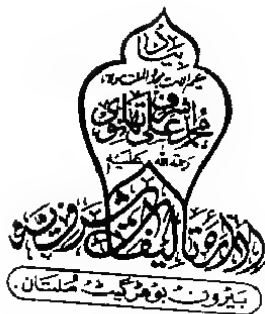 بیاد
حکیم الامت مجدد الملت حضرت
محمد اشرف علی تھانوی
رحمۃ اللہ علیہ
ادارہ تالیفات اشرفیہ
بیرون بوھڑ گیٹ ملتان